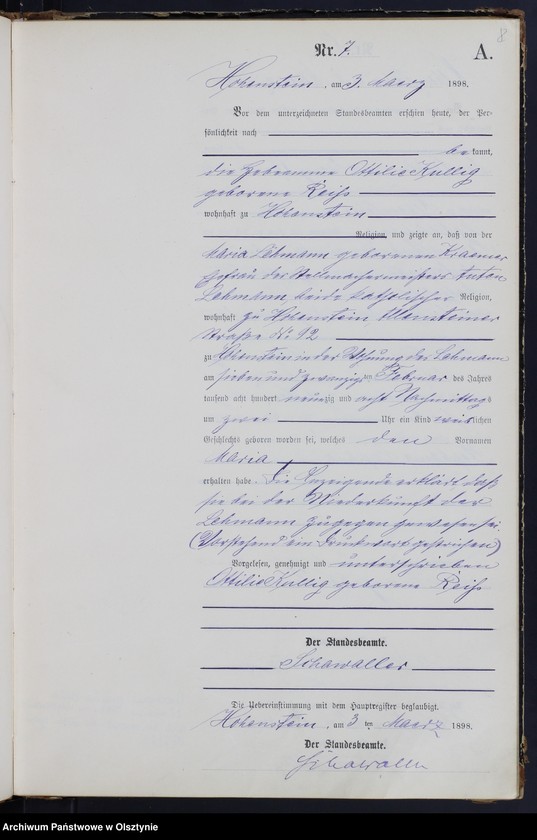 8
Nr. 7. A.
Hohenstein, am 3. Maerz 1898.
Vor dem unterzeichneten Standesbeamten erschien heute, der Per-
sönlichkeit nach
bekannt,
die Hebeamme Ottilie Kullig
geborene Reiß
wohnhaft zu Hohenstein
Religion, und zeigte an, daß von der
Maria Lehmann geborenen Kraemer
Ehefrau des Stellmachermeisters Anton
Lehmann, beide katholischer Religion,
wohnhaft zu Hohenstein, Allensteiner
Straße No 92
zu Hohenstein in der Wohnung des Lehmann
am sieben und zwanzigsten Februar des Jahres
tausend acht hundert neunzig und acht Nachmittags
um zwei Uhr ein Kind weiblichen
Geschlechts geboren worden sei, welches den Vornamen
Maria
erhalten habe. Die Anzeigende erklärt daß
sie bei der Niederkunft der
Lehmann zugegen gewesen sei.
(Vorstehend ein Druckwort gestrichen)
Vorgelesen, genehmigt und unterschrieben
Ottilie Kullig geborene Reiß
Der Standesbeamte.
Schawaller
Die Uebereinstimmung mit dem Hauptregister beglaubigt.
Hohenstein, am 3 ten Maerz 1898.
Der Standesbeamte.
Schawaller
Archiwum Państwowe w Olsztynie